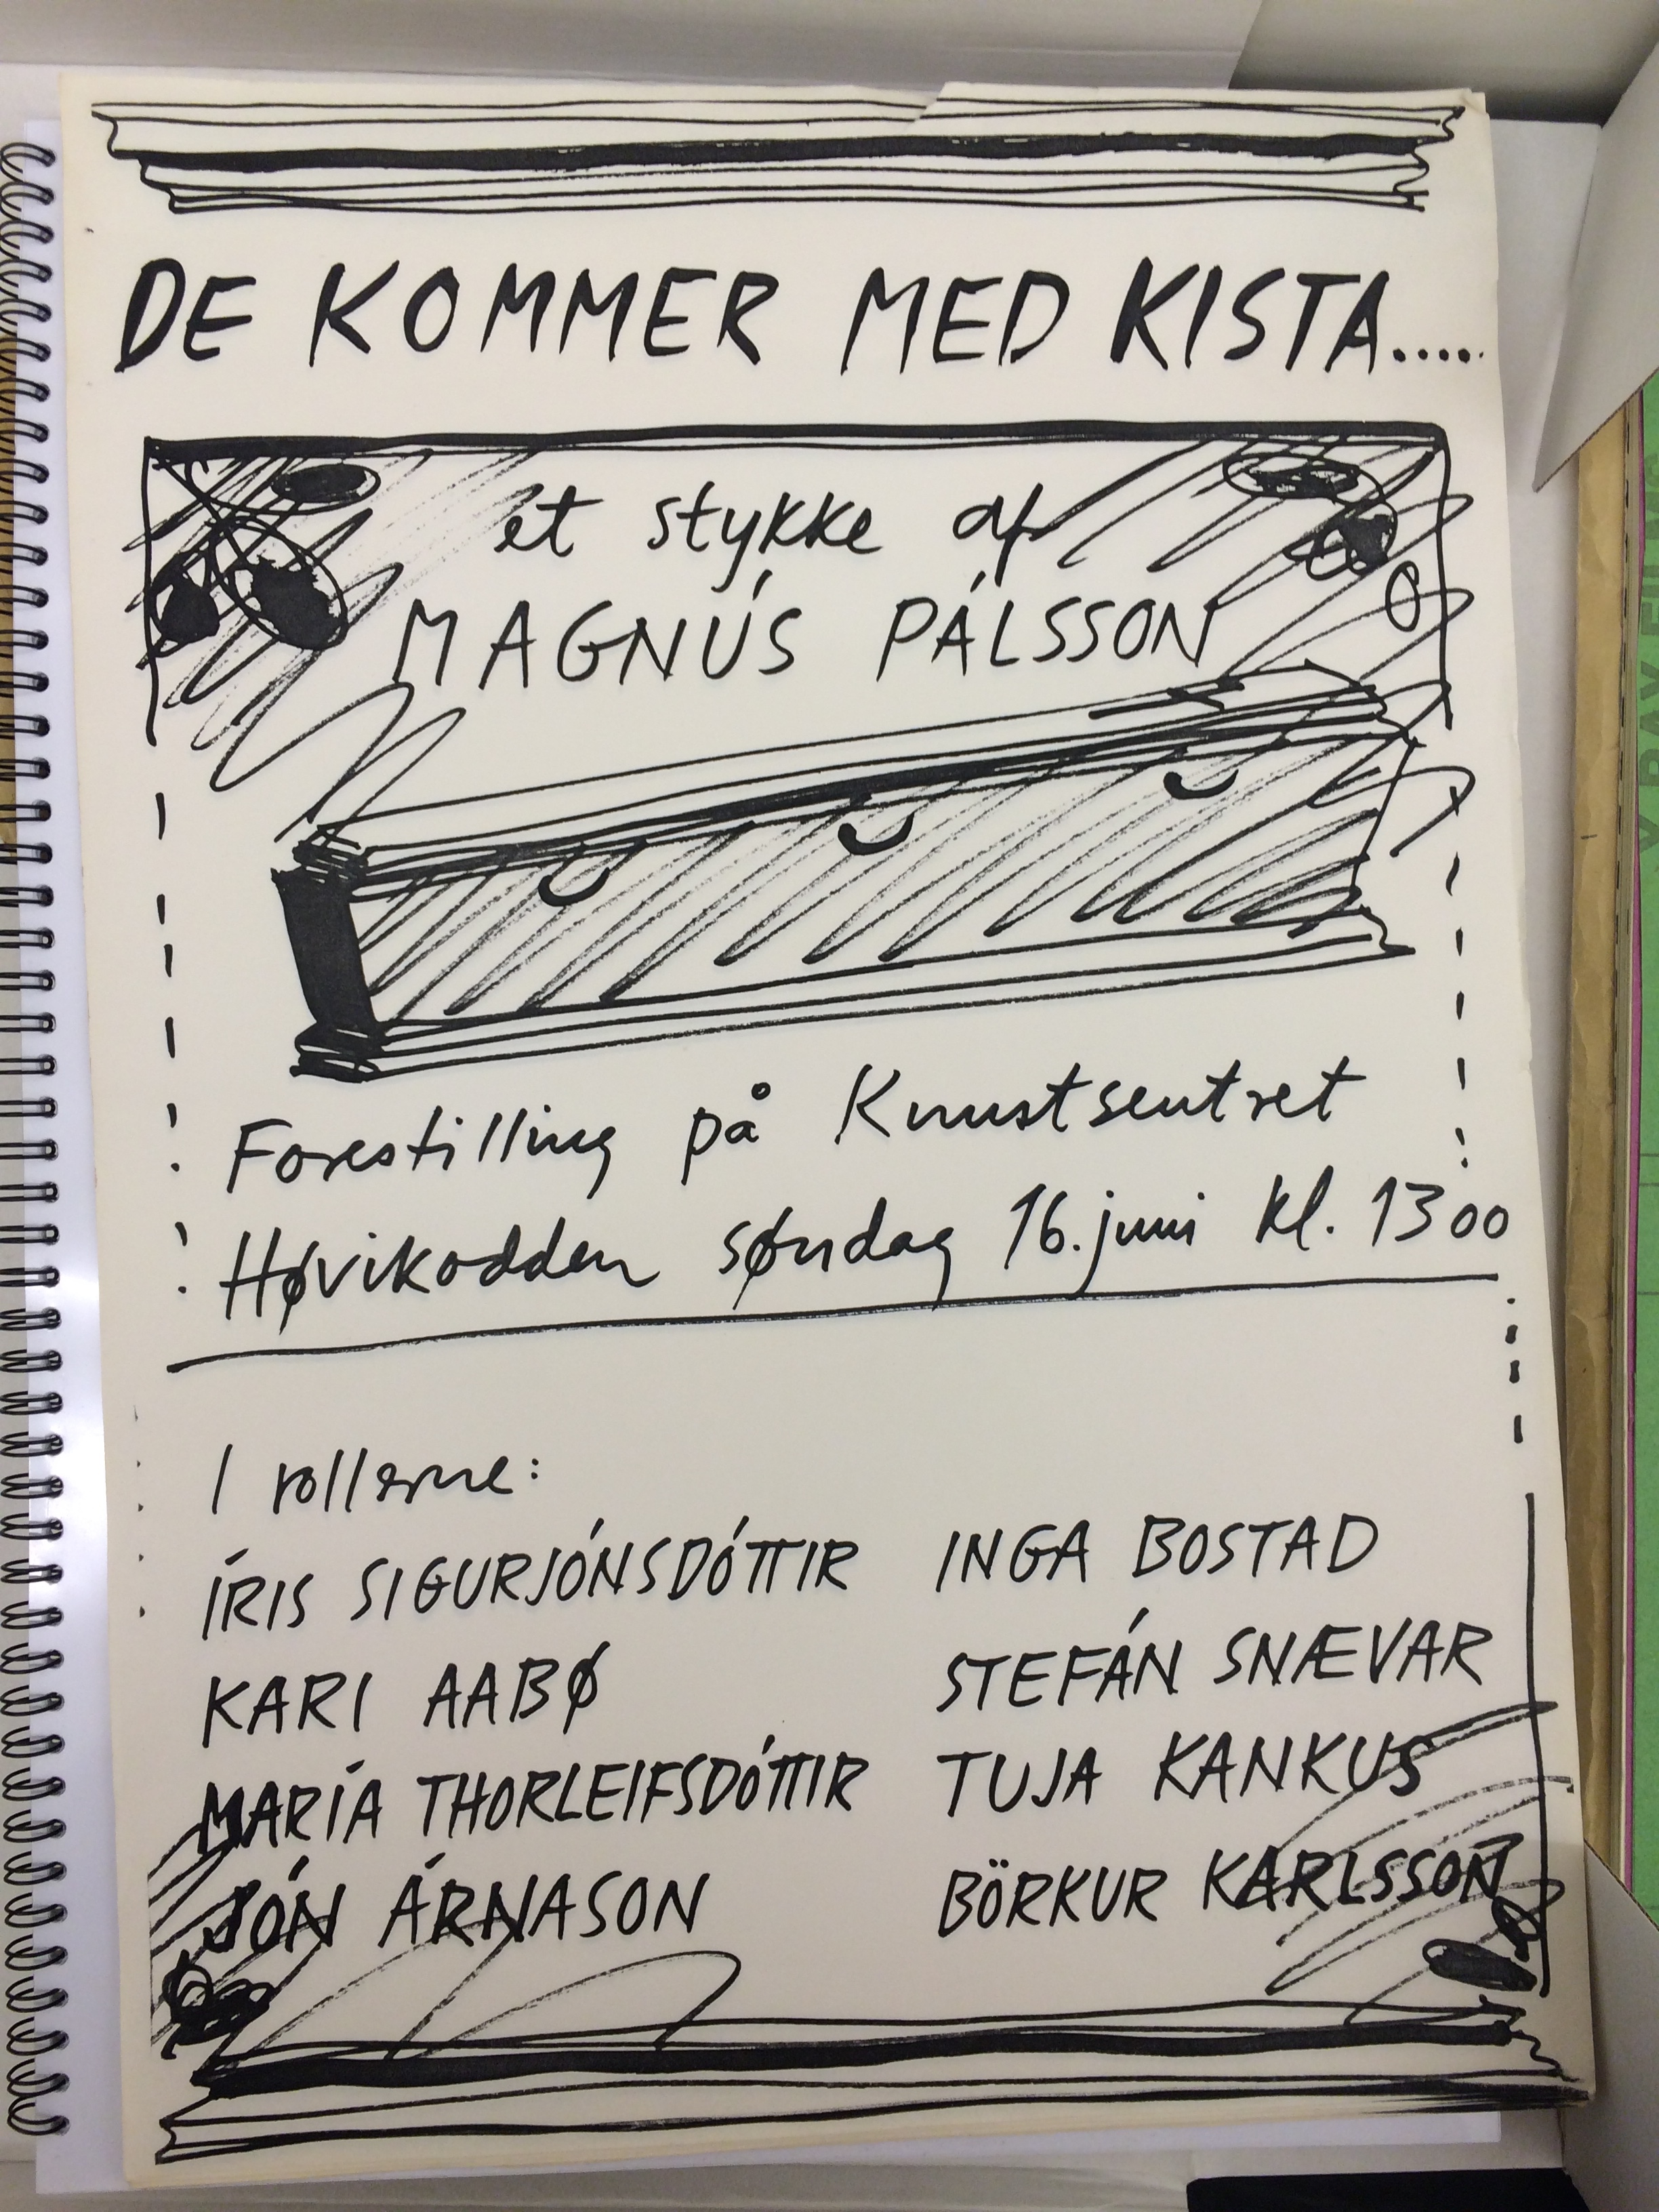 DE KOMMER MED KISTA.....
et stykke af
MAGNÚS PÁLSSON
Forestilling på Kunstsentret
Høvikodden søndag 16. juni kl. 13 00
I rollerne:
ÍRIS SIGURJÓNSDÓTTIR
KARI AABØ
MARÍA THORLEIFSDÓTTIR
JÓN ÁRNASON
INGA BOSTAD
STEFÁN SNÆVAR
TUJA KANKUS
BÖRKUR KARLSSON